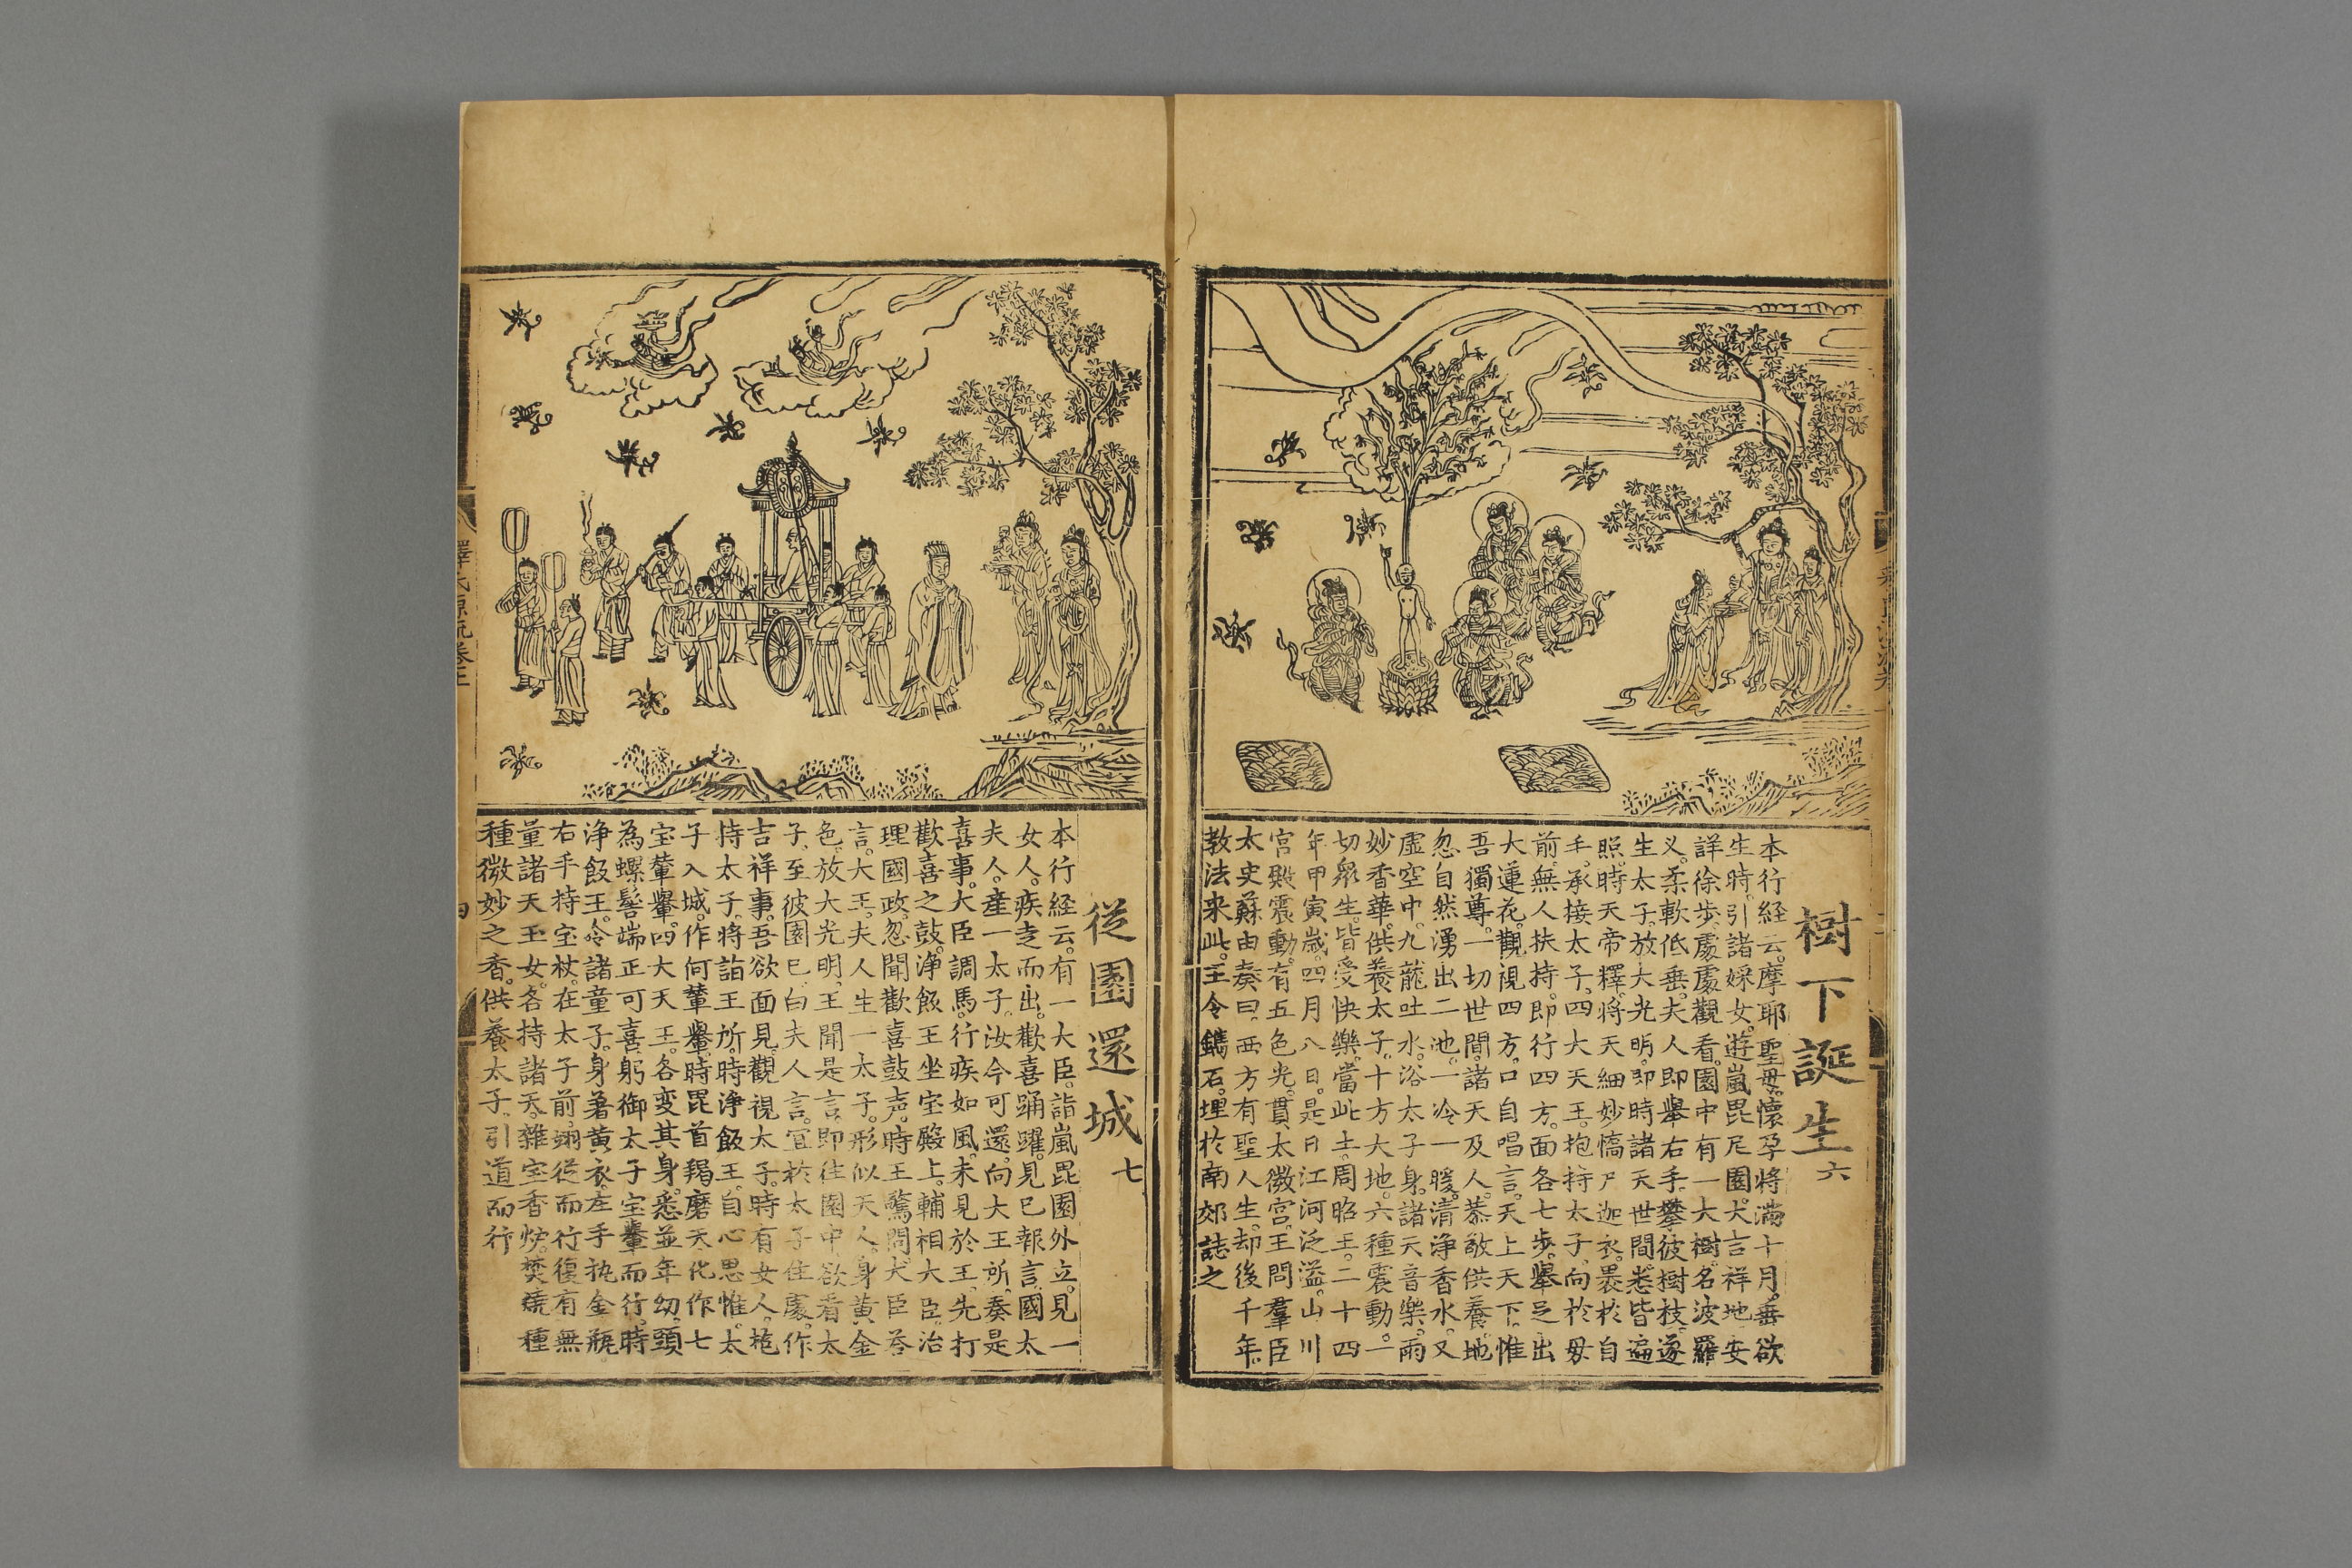 樹下誕生六
本行経云。摩耶聖母。懷孕將滿十月。垂欲
生時。引諸婇女。遊嵐毘尼園。大吉祥地。安
詳徐步。處處觀看。園中有一大樹。名波羅
义。柔軟低垂。夫人即舉右手。攀彼樹枝。遂
生太子。放大光明。即時諸天世間。悉皆遍
照。時天帝釋。將天細妙憍尸迦衣。褁於自
手。承接太子。四大天王。抱持太子。向於母
前。無人扶持。即行四方。面各七步。舉足出
大蓮花。觀視四方。口自唱言。天上天下。惟
吾獨尊。一切世間。諸天及人。恭敬供養。地
忽自然湧出二池。一冷一暖。清淨香水。又
虛空中。九龍吐水。浴太子身。諸天音樂。雨
妙香華。供養太子。十方大地。六種震動。一
切衆生。皆受快樂。當此土。周昭王。二十四
年甲寅歲。四月八日。是日江河泛溢。山川
宮殿震動。有五色光。貫太微宮。王問羣臣
太史蘇由奏曰。西方有聖人生。却後千年。
教法来此。王令鐫石。埋於南郊誌之
從園還城七
本行経云。有一大臣。詣嵐毘園外立。見一
女人。疾走而出。歡喜踊躍。見已報言。國太
夫人。產一太子。汝今可還。向大王所。奏是
喜事。大臣調馬。行疾如風。未見於王。先打
歡喜之鼓。淨飯王坐宝殿上。輔相大臣。治
理國政。忽聞歡喜鼓声。時王驚問。大臣荅
言。大王。夫人生一太子。形似天人。身黃金
色。放大光明。王聞是言。即往園中。欲看太
子。至彼園已。白夫人言。宜於太子住處。作
吉祥事。吾欲面見。觀視太子。時有女人。抱
持太子。將詣王所。時淨飯王。自心思惟。太
子入城。作何輦轝。時毘首羯磨天。化作七
宝輦轝。四大天王。各变其身。悉並年幼。頭
為螺髻。端正可喜。躬御太子宝輦而行。時
淨飯王。令諸童子。身著黃衣。左手执金瓶。
右手持宝杖。在太子前。翊從而行。復有無
量諸天玉女。各持諸天。雜宝香炉。焚燒種
種微妙之香。供養太子。引道而行
釋氏源流卷上
四